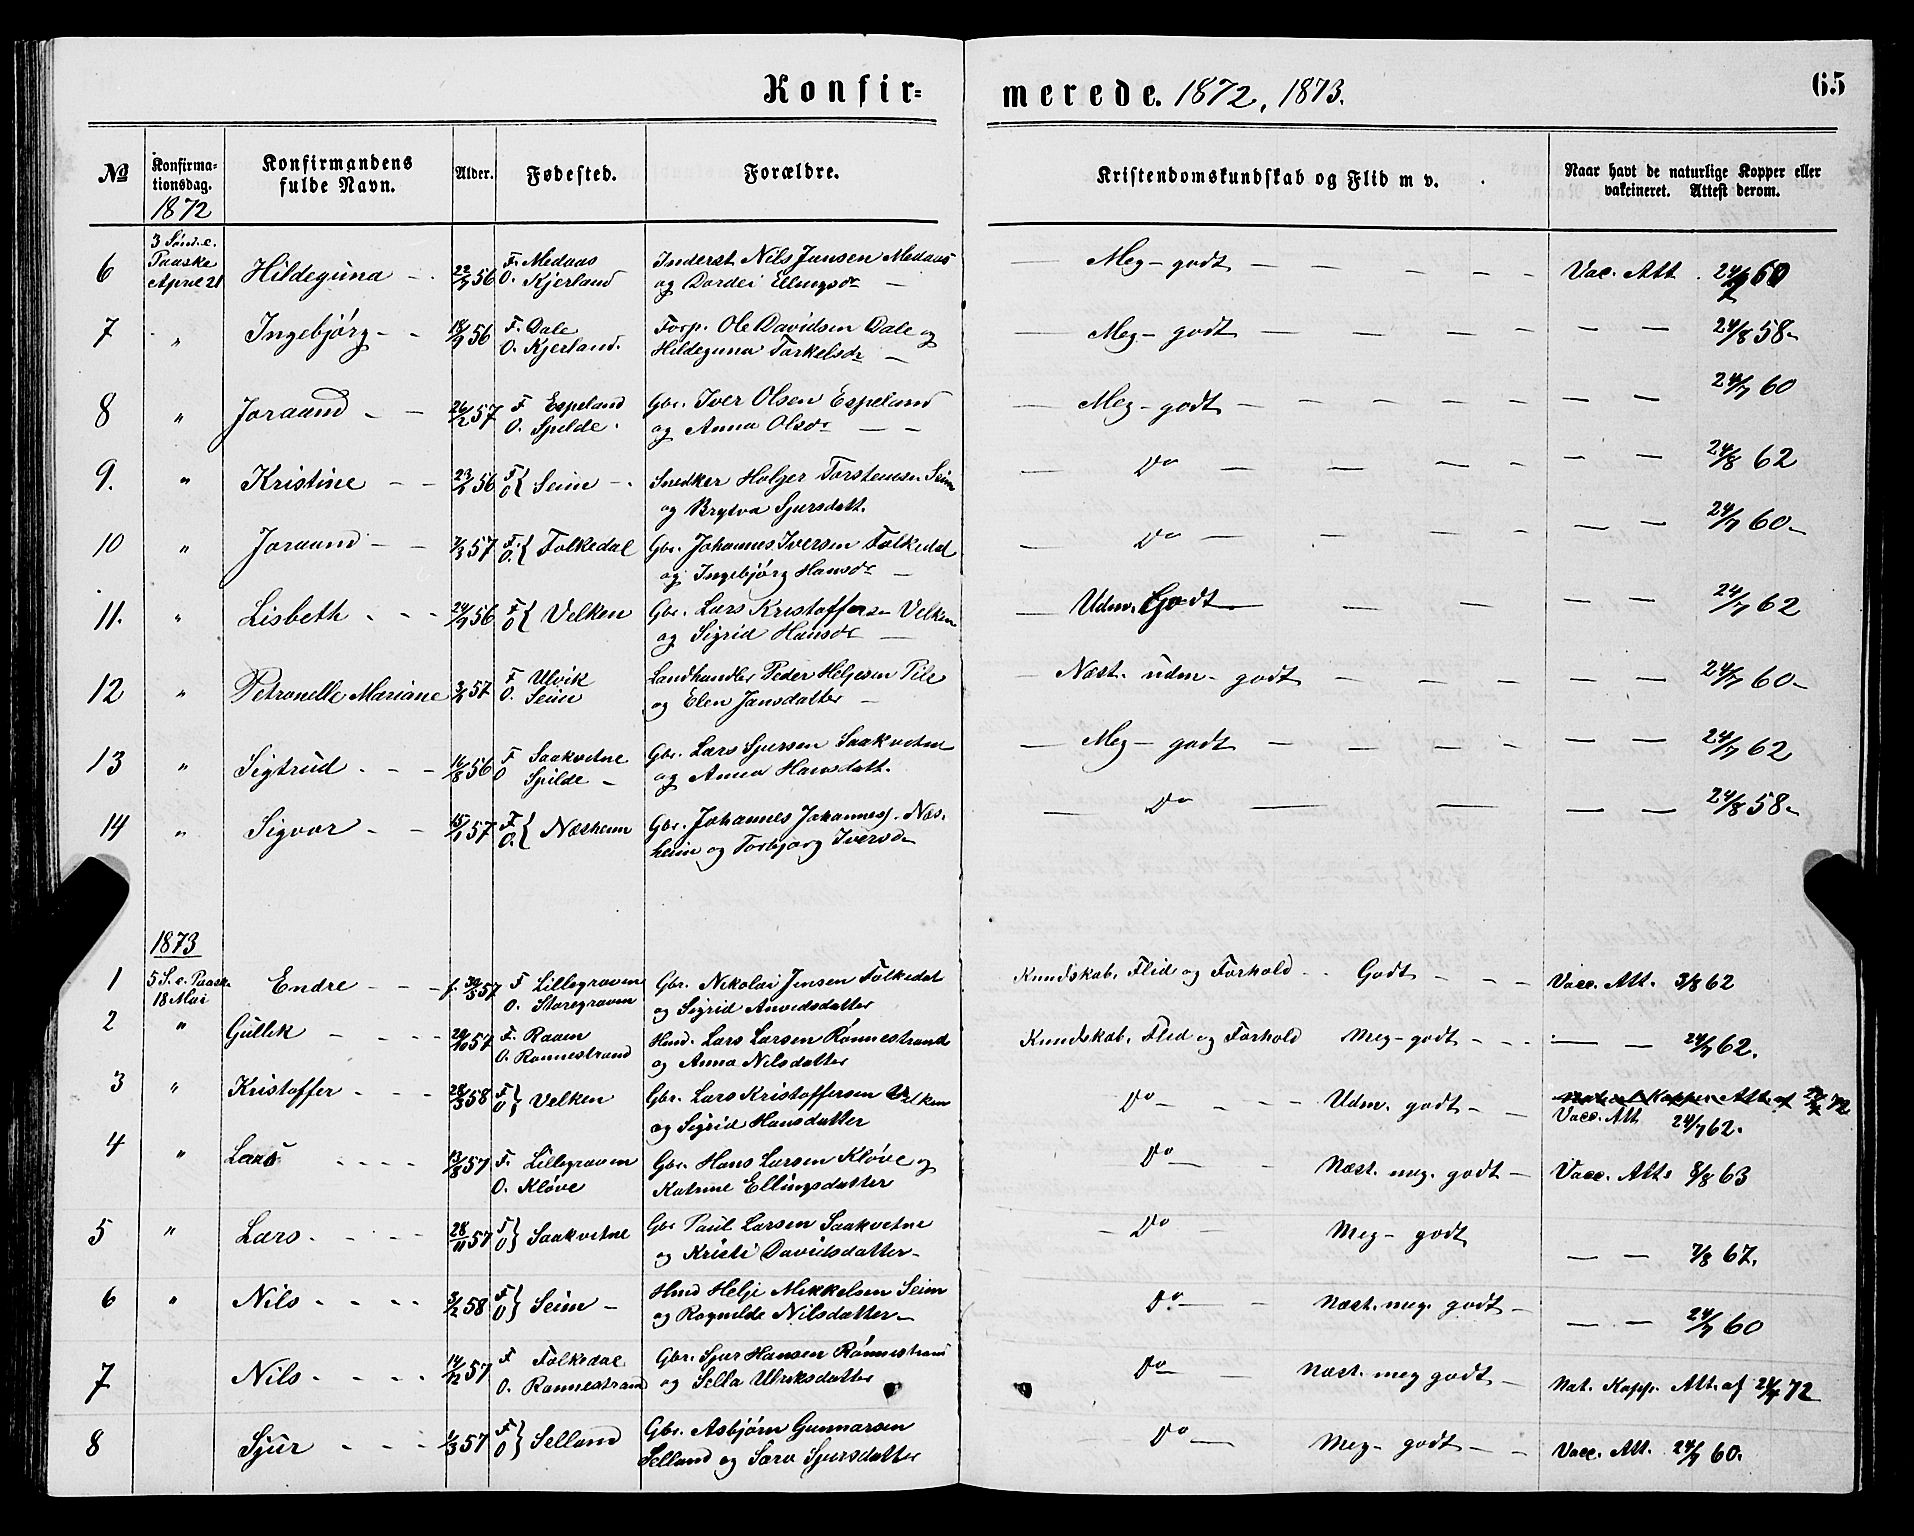 Konfir= merede. 1872, 1873. 65
No Konfirmationsdag. Konfirmandens fulde Navn. Alder. Fødested. Forældre. Kristendomskundskab og Flid m v. Naar havt de naturlige Kopper eller vakcineret. Attest derom.
1872
3 Sønd. e. Paaske April 21
6 Hildeguna 56 F. Medaas Inderst Nils Jansen Medaas Meg-godt Vac. Att. 60
O. Kjerland og Dordei Ellingsdr
7 " Ingebjørg 56 F. Dale Forp. Ole Davidsen Dale og Meg-godt 24/8 58
O. Kjerland. Hildeguna Torkelsdr
8 " Joraand 26/2 57 F Espeland Gbr. Iver Olsen Espeland Meg-godt 24/7 60
O. Spilde og Anna Olsdr
9. " Kristine 56 F O { Seim Snedker Holger Torstensn Seim Do 24/8 62
og Brytva Sjursdatt.
10 " Joraand 7/3 57 F. O. { Folkedal Gbr. Johannes Iversen Folkedal Do 24/7 60
og Ingebjørg Hansdr
11. " Lisbeth 56 F O { Velken Gbr. Lars Kristoffersen Velken Udm. Godt 24/7 62
og Sigrid Hansdr
12 " Petronelle Mariane 57 F Ulvik Landhandler Peder Helgesen Pile Næst. udm-godt 24/7 60
O. Seim og Elen Jansdatter
13 " Sigtrud 56 F Saakvetne Gbr. Lars Sjursen Saakvetne Meg-godt 24/7 62
O Spilde og Anna Hansdatt.
14 " Sigvor 15/1 57 F. O. { Næsheim Gbr. Johannes Johannes. Næs- Do 24/8 58
heim og Torbjørg Iversd
1873
5 S. e. Paask. 18 Mai
1 Endre f. 30/5 57 F Lillegraven Gbr. Nikolai Jensen Folkedal Kundskab, Flid og Forhold Godt Vacc. Att. 3/8 62
O. Storegraven og Sigrid Arvedsdatter
2 " Gullik 57 F. Raaen Hmd. Lars Larsen Rønnestrand Kundskab, Flid og Forhold Meg-godt 24/7 62.
O. Rønnestrand og Anna Nilsdatter
3 " Kristoffer 28/3 58 F O } Velken Gbr. Lars Kristoffersen Velken Do Udm. godt Nat. Kopper Att. af 72
og Sigrid Hansdatter Vacc. Att 24/7 62.
4 " Lars 13/8 57 F. Lillegraven Gbr. Hans Larsen Kløve og Do Næst. meg. godt Vacc. Att. 8/8 63
O. Kløve Katrine Ellingsdatter
5 " Lars. 28/11 57 F O } Saakvetne Gbr Paul Larsen Saakvetne Do Meg-godt 7/8 67.
og Kristi Davidsdatter
6 " Nils 3/2 58 F O } Seim Hmd Helje Mikkelsen Seim Do Næst. meg. godt 24/7 60
og Ragnilde Nilsdatter
7 Nils 14/12 57 F Folkedal Gbr. Sjur Hansen Rønnestrand Do Næst. meg godt Nat. Kopp. Att. af 72
O. Rønnestrand og Sella Ulriksdatter
8 Sjur 1/3 57 F O } Selland Gbr. Asbjørn Gunnarsen Do Meg-godt Vacc. Att. 24/7 60.
Selland og Sara Sjursdatter